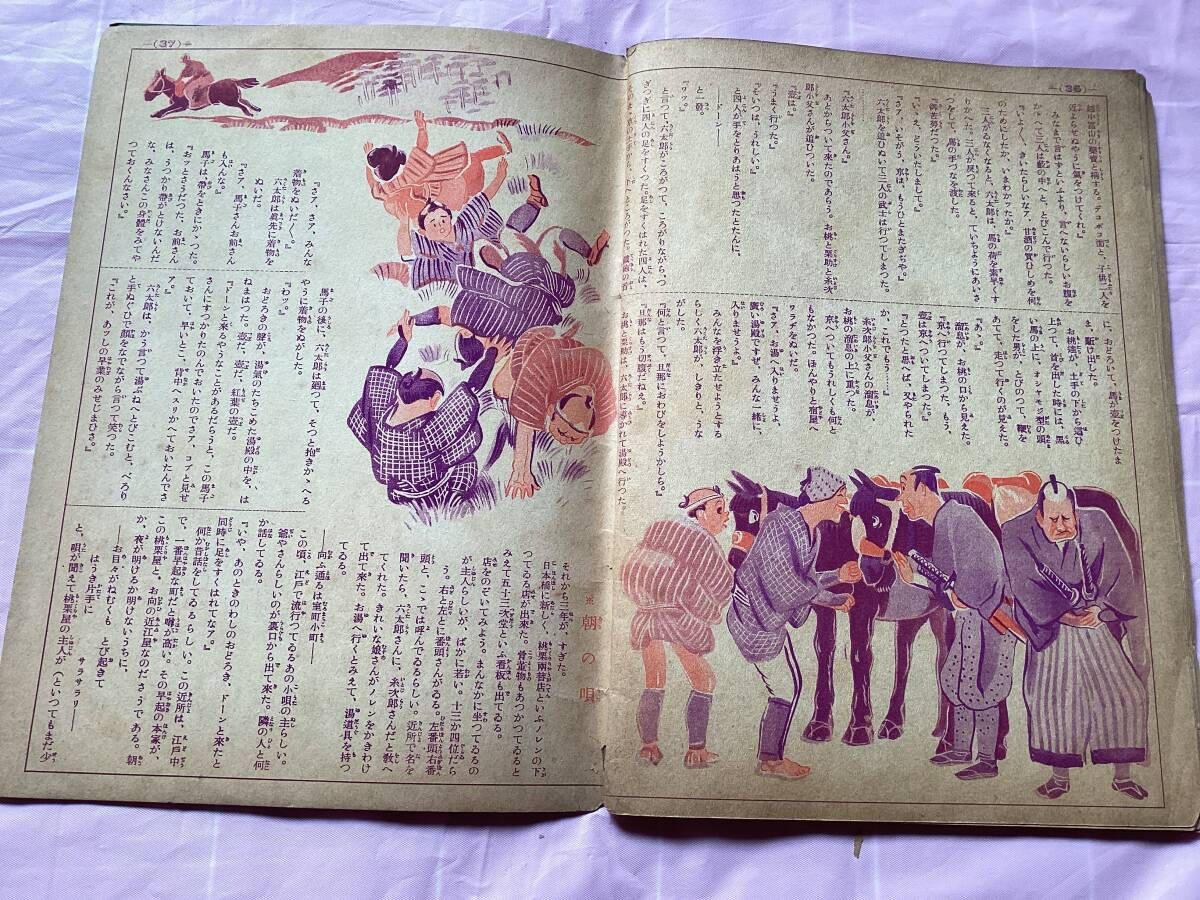 (36)
越中富山の藥賣と稱する。デコボコ面と、子供二人を
近よらせぬやうに氣をつけてくれ』
みなまで言はずといふより、言へないらしいお腹を
かゝへて三人は藪の中へと、とびこんで行つた。
『いよ〳〵、きいたらしいなア。甘酒の買ひしめを何
のためにしたか、いまわかッたか。』
三人がゐなくなると、六太郎は、馬の荷を素早くす
りかへた。三人が戻つて來ると、ていちようにあいさ
つをして、馬の手づなを渡した。
『御苦勞だつた。』
『いゝえ、どういたしまして。』
『さア、いそがう、京は、もうひとまたぎぢや。』
六太郎を追ひぬいて三人の武士は行つてしまつた。
『六太郎小父さん。』
あとからついて來たのであらう。お桃と栗助と糸次
郎小父さんが追ひついた。
『壺は。』
『うまく行つた。』
『そいつは、うれしい。』
と四人が手をとりあはうと思つたとたんに、
――ドーン――
と一發。
『ワッ。』
と言つて、六太郎がころがつて、ころがりながら、つ
ぎつぎに四人の足をすくつた。足をすくはれた四人は、
に、おどろいて、馬が壺をつけたま
ま、駈け出した。
お桃達が、土手の下から這ひ
上つて、首を出した時には、黑
い馬の上に、オシャモジ型の頭
をした男が、とびのつて、鞭を
あてて、走つて行くのが見えた。
『あッ。』
溜息が、お桃の口から見えた。
『京へ行つてしまつた、もう、
壺は京へついてしまつた。』
『とつたと思へば、又やられた
か、これでもう――』
糸次郎小父さんの溜息が、
お桃の溜息の上に重つた。
京へついてもうれしくも何と
もなかつた。ほんやりと宿屋へ
ワラヂをぬいだ。
『さア、お湯へ入りませうよ、
廣い湯殿ですぜ、みんな一緒に、
入りませうよ。』
みんなを浮き立たせようとする
らしく六太郎が、しきりと、うな
がした。
『何と言つて、旦那におわびをしようかしら。』
『旦那はもう切腹だねえ。』
お桃と栗助は、六太郎に導かれて湯殿へ行つた。
(37)
『さア、さア、みんな
着物をぬいだ〳〵。』
六太郎は眞先に着物を
ぬいだ。
『さア、馬子さんお前さん
も入んな。』
馬子は、帶をときにかゝつた。
『おッとさうだつた、お前さん
は、うつかり帶がとけないんだ
な、みなさんこの身體をみてや
つておくんなさい。』
馬子の後に、六太郎は廻つて、そつと抱きかゝへる
やうに着物をぬがした。
『わッ。』
おどろきの聲が、湯氣のたちこめた湯殿の中を、は
ねまはつた。壺だ、壺だ、紅葉の壺だ。
『ドーンと來るやうなことがあるだらうと、この馬子
さんにすつかりたのんでおいたのでさア、コブと見せ
ておいて、早いとこ、背中へスリかへておいたんでさ
ア。』
六太郎は、かう言つて湯ぶねへとびこむと、べろり
と手ぬぐひで顏をなでながら言つて笑つた。
『これが、あッしの早業のみせじまひさ。』
※朝の唄
それから三年が、すぎた。
日本橋に新しく、桃栗兩替店といふノレンの下
つてゐる店が出來た。骨董物もあつかつてゐると
みえて五十三次堂といふ看板も出てゐる。
店をのぞいてみよう。まんなかに坐つてゐるの
が主人らしいが、ばかに若い。十三か四位だら
う。右と左とに番頭さんがゐる。左番頭右番
頭と、こゝでは呼んでゐるらしい。近所で名を
聞いたら、六太郎さんに、糸次郎さんだと敎へ
てくれた。きれいな娘さんがノレンをかきわけ
て出て來た。お湯へ行くとみえて、湯道具を持つ
てゐる。
――向ふ通るは室町小町――
この頃、江戸で流行つてゐるあの小唄の主らしい。
爺やさんらしいのが裏口から出て來た。隣の人と何
か話してゐる。
『いや、あのときのわしのおどろき、ドーンと來たと
同時に足をすくはれてなア。』
何か昔話をしてゐるらしい。この近所は、江戸中
で、一番早起な町だと噂が高い。その早起の本家が、
この桃栗屋と、お向の近江屋なのださうである。朝
か、夜が明けるか明けないうちに、
――お目々がねむくも とび起きて
はうき片手に サラサラ――
と、唄が聞えて桃栗屋の主人が（といつてもまだ少